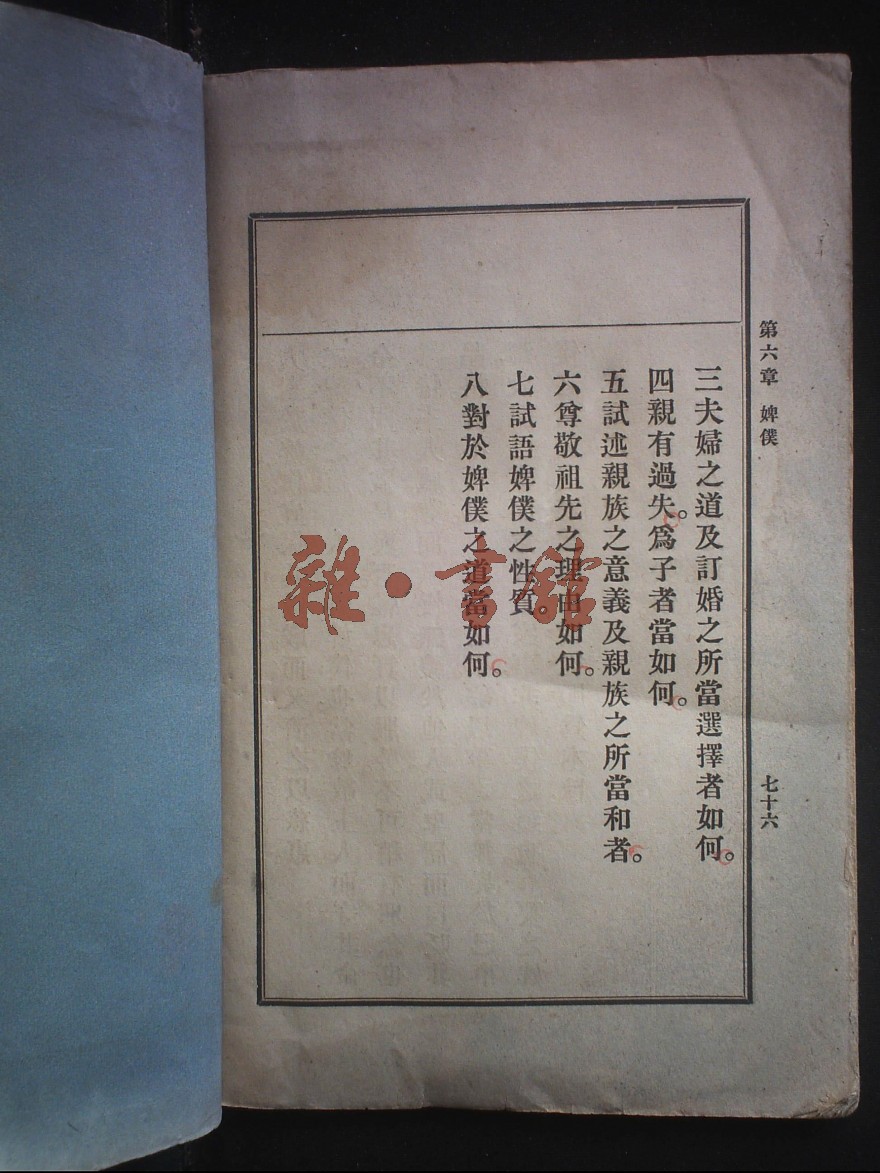 第六章 婢僕
七十六
三夫婦之道及訂婚之所當選擇者如何。
四親有過失。爲子者當如何。
五試述親族之意義及親族之所當和者。
六尊敬祖先之理由如何。
七試語婢僕之性質。
八對於婢僕之道當如何。
雜·書館